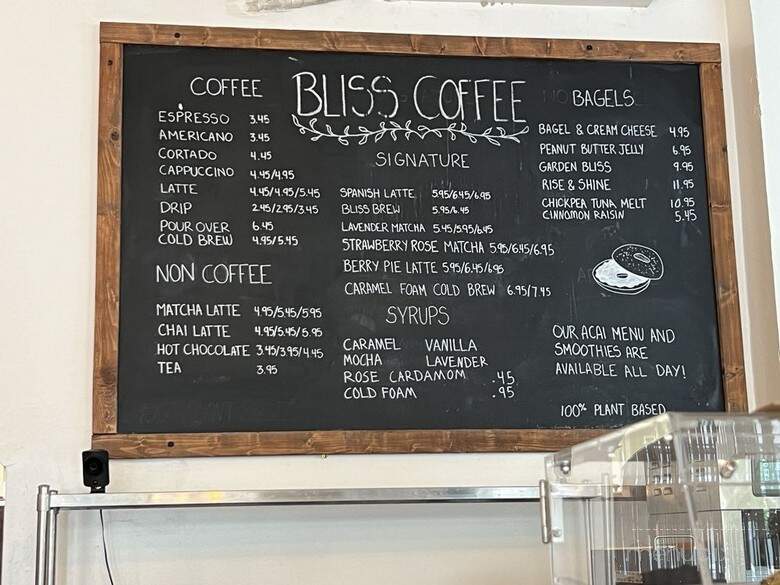 BLISS COFFEE
COFFEE
ESPRESSO 3.45
AMERICANO 3.45
CORTADO 4.45
CAPPUCCINO 4.45/4.95
LATTE 4.45/4.95/5.45
DRIP 2.45/2.95/3.45
POUR OVER 6.45
COLD BREW 4.95/5.45
NON COFFEE
MATCHA LATTE 4.95/5.45/5.95
CHAI LATTE 4.95/5.45/5.95
HOT CHOCOLATE 3.45/3.95/4.45
TEA 3.95
SIGNATURE
SPANISH LATTE 5.95/6.45/6.95
BLISS BREW 5.95/6.45
LAVENDER MATCHA 5.45/5.95/6.45
STRAWBERRY ROSE MATCHA 5.95/6.45/6.95
BERRY PIE LATTE 5.95/6.45/6.95
CARAMEL FOAM COLD BREW 6.95/7.45
SYRUPS
CARAMEL VANILLA
MOCHA LAVENDER
ROSE CARDAMOM .45
COLD FOAM .95
BAGELS
BAGEL & CREAM CHEESE 4.95
PEANUT BUTTER JELLY 6.95
GARDEN BLISS 9.95
RISE & SHINE 11.95
CHICKPEA TUNA MELT 10.95
CINNAMON RAISIN 5.45
OUR ACAI MENU AND
SMOOTHIES ARE
AVAILABLE ALL DAY!
100% PLANT BASED